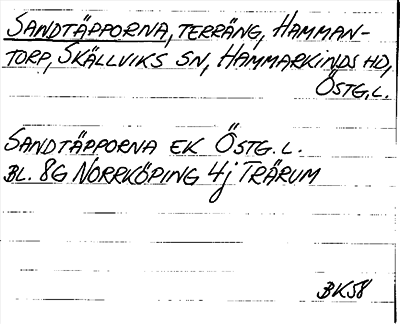 SANDTÄPPORNA, TERRÄNG, HAMMAN-
TORP, SKÄLLVIKS SN, HAMMARKINDS HD,
ÖSTG.L.
SANDTÄPPORNA EK ÖSTG. L.
BL. 8G NORRKÖPING 4j TRÄRUM
BK58